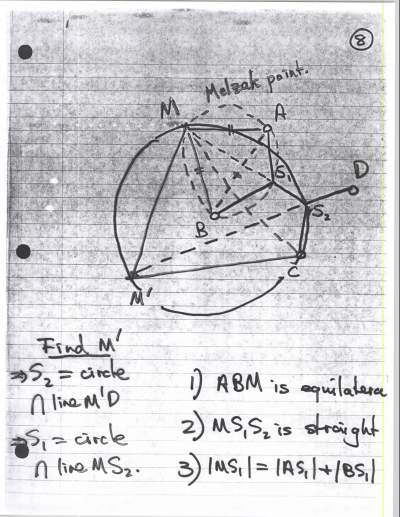 8
Melzak point.
M
A
D
S₁
S₂
B
C
M'
Find M'
⇒ S₂ = circle
∩ line M'D
⇒ S₁ = circle
∩ line MS₂.
1) ABM is equilatera
2) MS₁S₂ is straight
3) |MS₁| = |AS₁| + |BS₁|